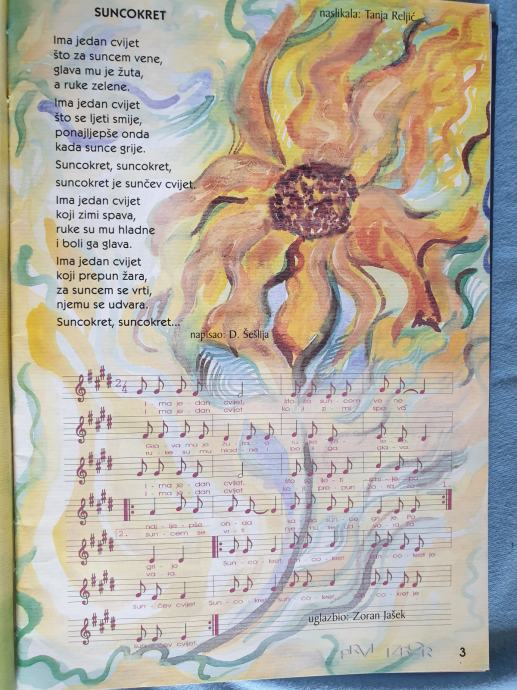 SUNCOKRET
naslikala: Tanja Reljić
Ima jedan cvijet
što za suncem vene,
glava mu je žuta,
a ruke zelene.
Ima jedan cvijet
što se ljeti smije,
ponajljepše onda
kada sunce grije.
Suncokret, suncokret,
suncokret je sunčev cvijet.
Ima jedan cvijet
koji zimi spava,
ruke su mu hladne
i boli ga glava.
Ima jedan cvijet
koji prepun žara,
za suncem se vrti,
njemu se udvara.
Suncokret, suncokret...
napisao: D. Šešlija
2/4
I - ma je - dan cvijet, što za sun - cem ve - ne
I - ma je - dan cvijet ko - ji zi - mi spa - va
Gla - va mu je žu - ta,
ru - ke su mu hlad - ne i bo - li ga gla - va.
I - ma je - dan cvijet, što se lje - ti
I - ma je - dan cvijet ko - ji pre - pun
1.
naj - lje - pše on - da
2. sun - cem se vr - ti
gri - je Sun - co - kret, sun - co - kret, sun - co - kret je
va - ra.
sun - čev cvijet Sun - co - kret, sun - co - kret, sun - co - kret je
sun - čev cvijet.
uglazbio: Zoran Jašek
PRVI IZBOR 3